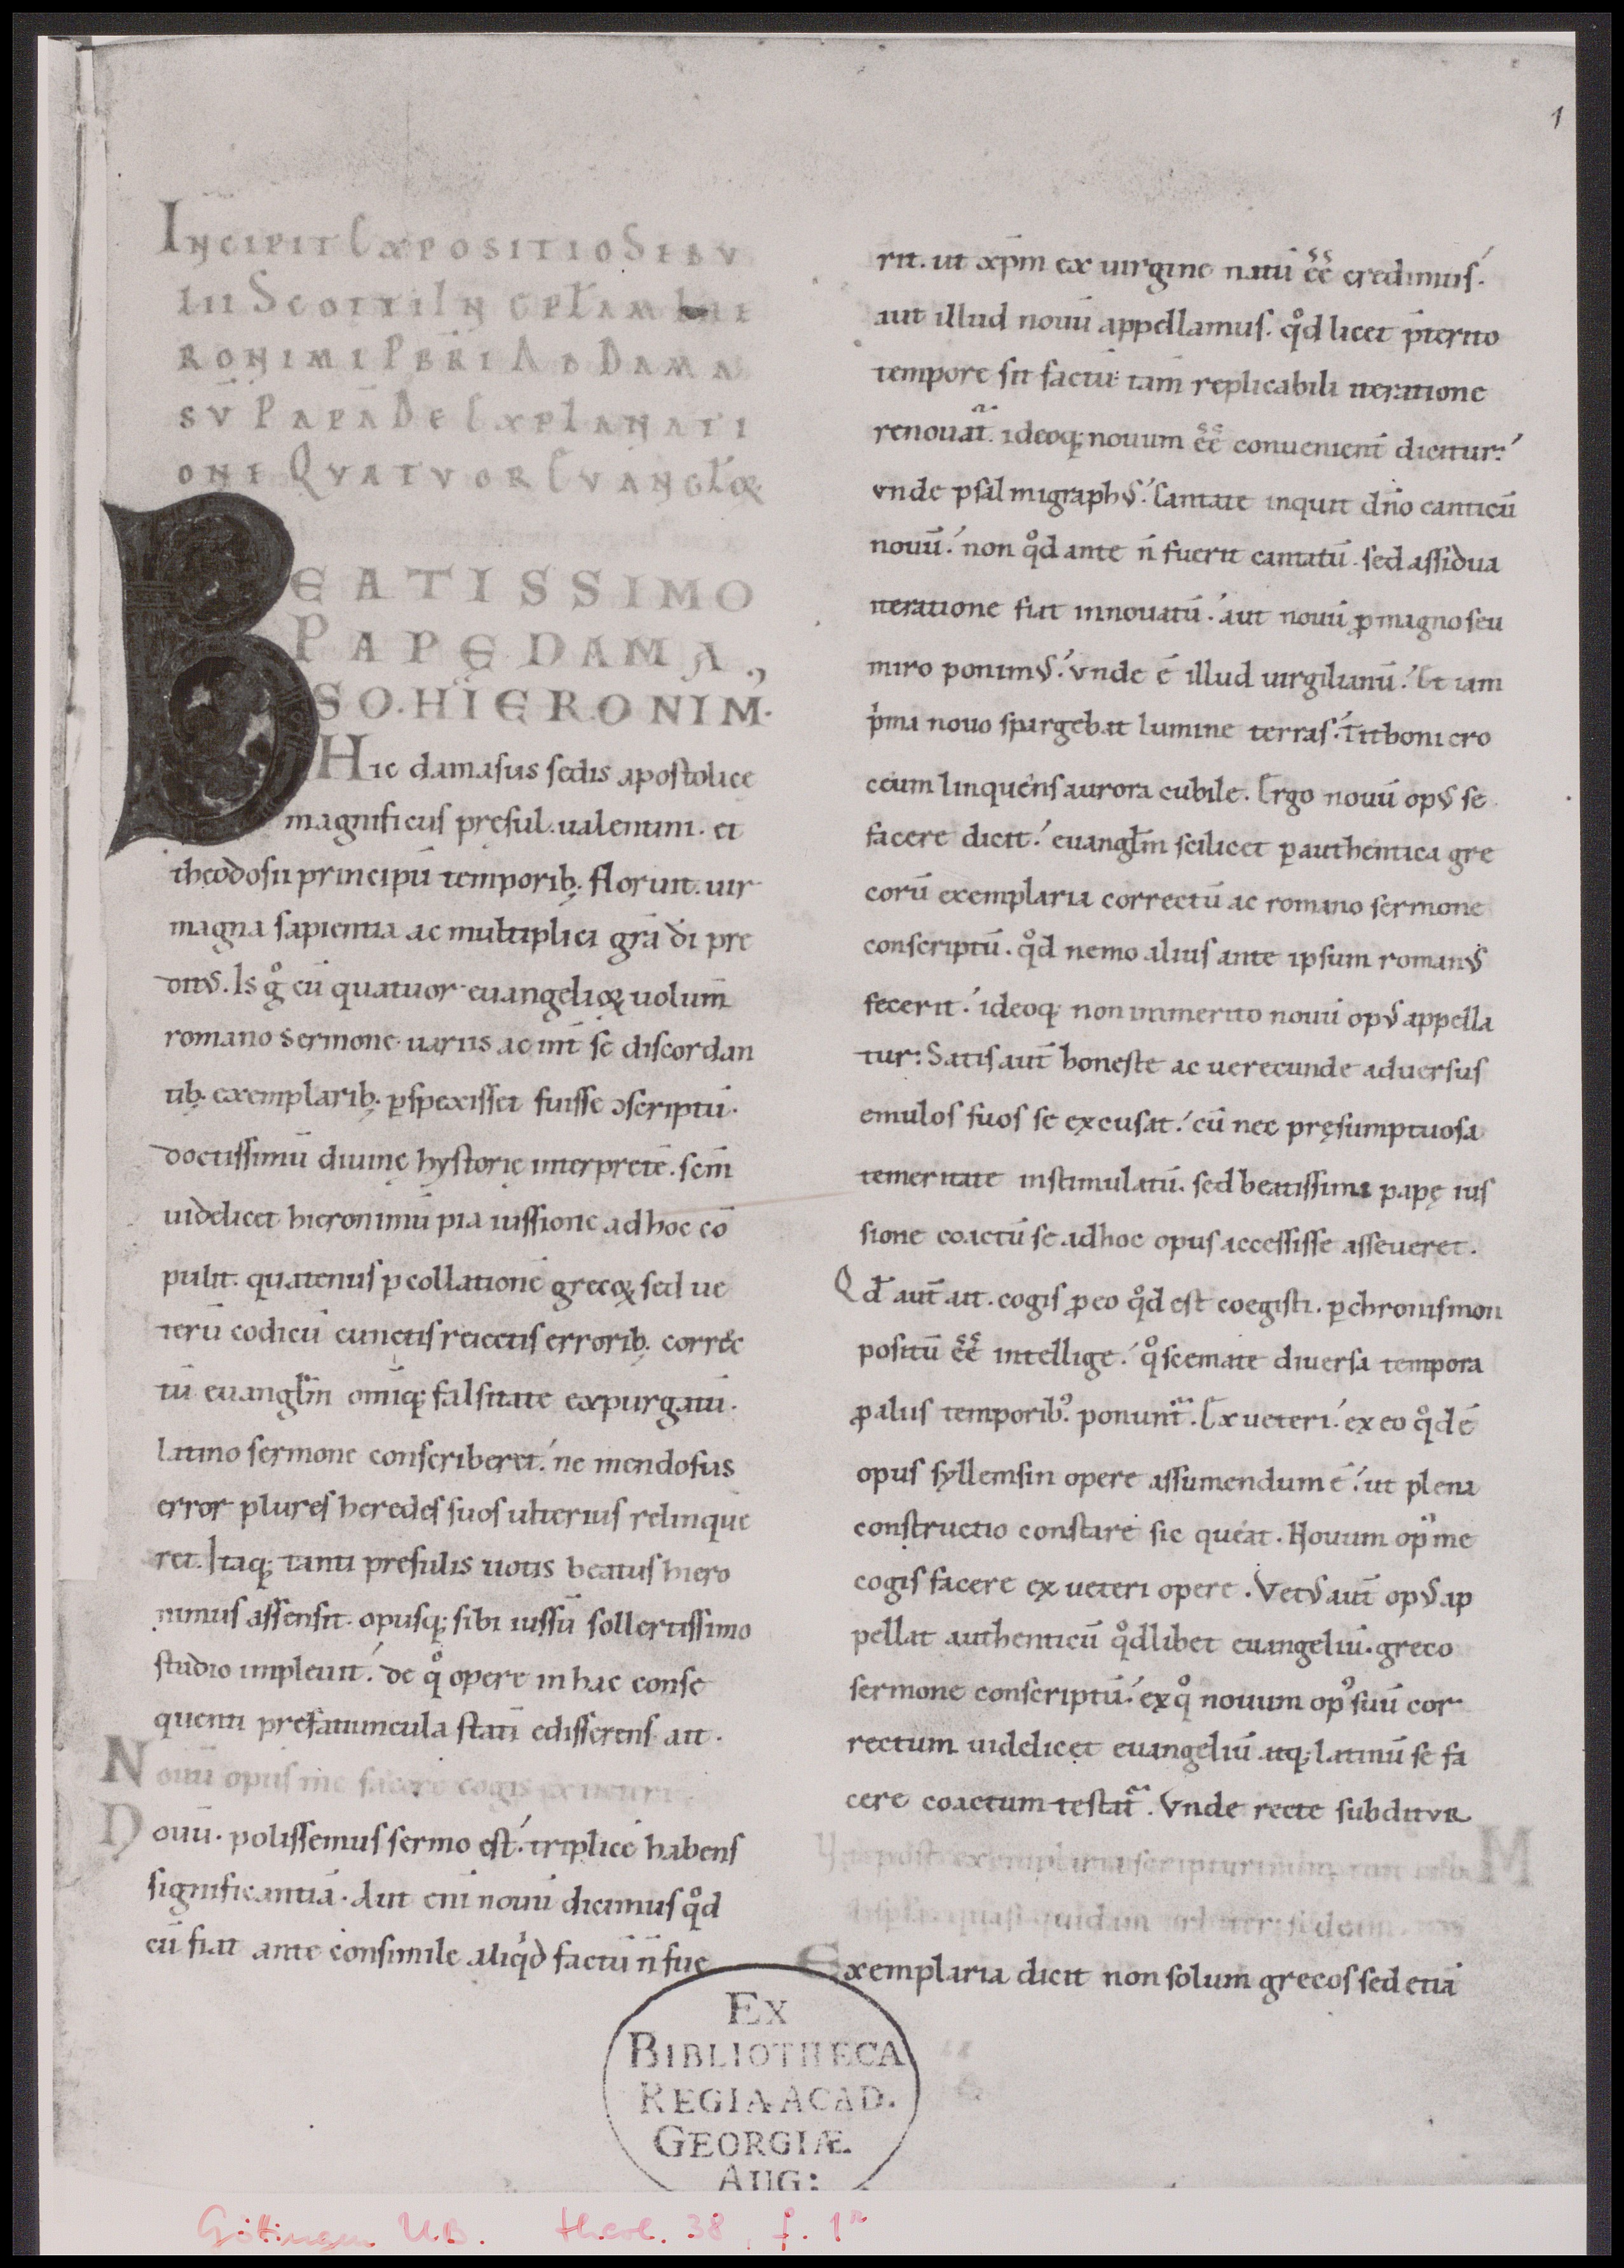 1
INCIPIT EXPOSITIO SEDU
LII SCOTTI IN EPLAM HIE
RONIMI PBRI AD DAMA
SŪ PAPĀ DE EXPLANATI
ONE QVATVOR EVANGLꝜ
BEATISSIMO
PAPĘ DAMA
SO. HIERONIM.
Hic damasus sedis apostolice
magnificus presul. ualentini. et
theodosii principū temporib; floruit. uir
magna sapientia ac multiplici grā dī pre
ditꝰ. Is gͦ cū quatuor euangelioꝝ uolum̄
romano sermone uariis ac int̄ se discordan
tib; exemplarib; ꝑspexisset fuisse ↄscriptū.
doctissimū diuinę hystorię interpretē. scm̄
uidelicet hieronimū pia iussione ad hoc cō
pulit. quatenus ꝑ collationē grecoꝝ sed ue
terū codicū cunctis reiectis errorib; correc
tū euanglm̄ omīq; falsitate expurgatū.
latino sermone conscriberet. ne mendosus
error plures heredes suos ulterius relinque
ret. Itaq; tanti presulis uotis beatus hiero
nimus assensit. opusq; sibi iussū sollertissimo
studio impleuit. de qͦ opere in hac conse
quenti prefatiuncula statī edisserens ait.
Nouū opus me facere cogis ex ueteri
Nouū. polissemus sermo est. triplicē habens
significantiā. Aut enī nouū dicimus qͦd
cū fiat ante consimile aliqͥd factū n̄ fue
rit. ut xp̄m ex uirgine natū ēē credimus.
aut illud nouū appellamus. qͦd licet p̄terito
tempore sit factū tam̄ replicabili iteratione
renouat̄. ideoq; nouum ēē conuenient̄ dicitur.
vnde psalmigraphꝰ. Cantate inquit dn̄o canticū
nouū. non qͦd ante n̄ fuerit cantatū. sed assidua
iteratione fiat innouatū. aut nouū ꝓ magno seu
miro ponimꝰ. vnde ē illud uirgilianū. Et iam
pͥma nouo spargebat lumine terras. Tithoni cro
ceum linquens aurora cubile. Ergo nouū opꝰ se
facere dicit. euanglm̄ scilicet ꝑ authentica gre
corū exemplaria correctū ac romano sermone
conscriptū. qͦd nemo alius ante ipsum romanꝰ
fecerit. ideoq; non inmerito nouū opꝰ appella
tur: Satis aut̄ honeste ac uerecunde aduersus
emulos suos se excusat. cū nec pręsumptuosa
temeritate instimulatū. sed beatissimi papę ius
sione coactū se ad hoc opus accessisse asseueret.
Qd̄ aut̄ ait. cogis ꝓ eo qͦd est coegisti. ꝑ chronismon
positū ēē intellige. qͦ scemate diuersa tempora
ꝓ alus temporibꝰ. ponunt̄. Ex ueteri. ex eo qͦd ē
opus syllemsin opere assumendum ē. ut plena
constructio constare sic queat. Nouum opꝰ me
cogis facere ex ueteri opere. Vetꝰ aut̄ opꝰ ap
pellat authenticū qͦdlibet euangeliū. greco
sermone conscriptū. ex qͦ nouum opꝰ suū cor
rectum uidelicet euangeliū atq; latinū se fa
cere coactum testat̄. Vnde recte subditur
quasi quidam
Exemplaria dicit non solum grecos sed etiā
EX
BIBLIOTHECA
REGIA ACAD.
GEORGIÆ
AUG:
Göttingen U.B. theol. 38, f. 1r